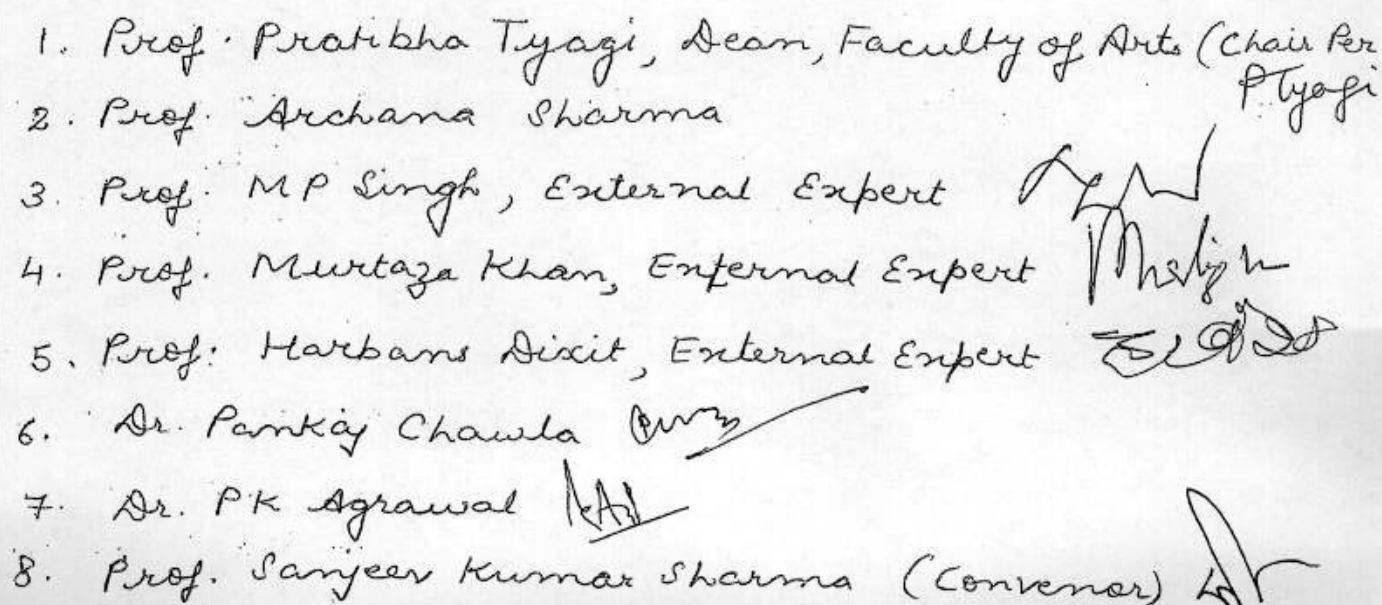 1. Prof. Pratibha Tyagi, Dean, Faculty of Arts (Chair Per
PTyagi
2. Prof. Archana Sharma
3. Prof. MP Singh, External Expert
4. Prof. Murtaza Khan, External Expert
5. Prof: Harbans Dixit, External Expert
6. Dr. Pankaj Chawla
7. Dr. PK Agrawal
8. Prof. Sanjeev Kumar Sharma (Convenor)